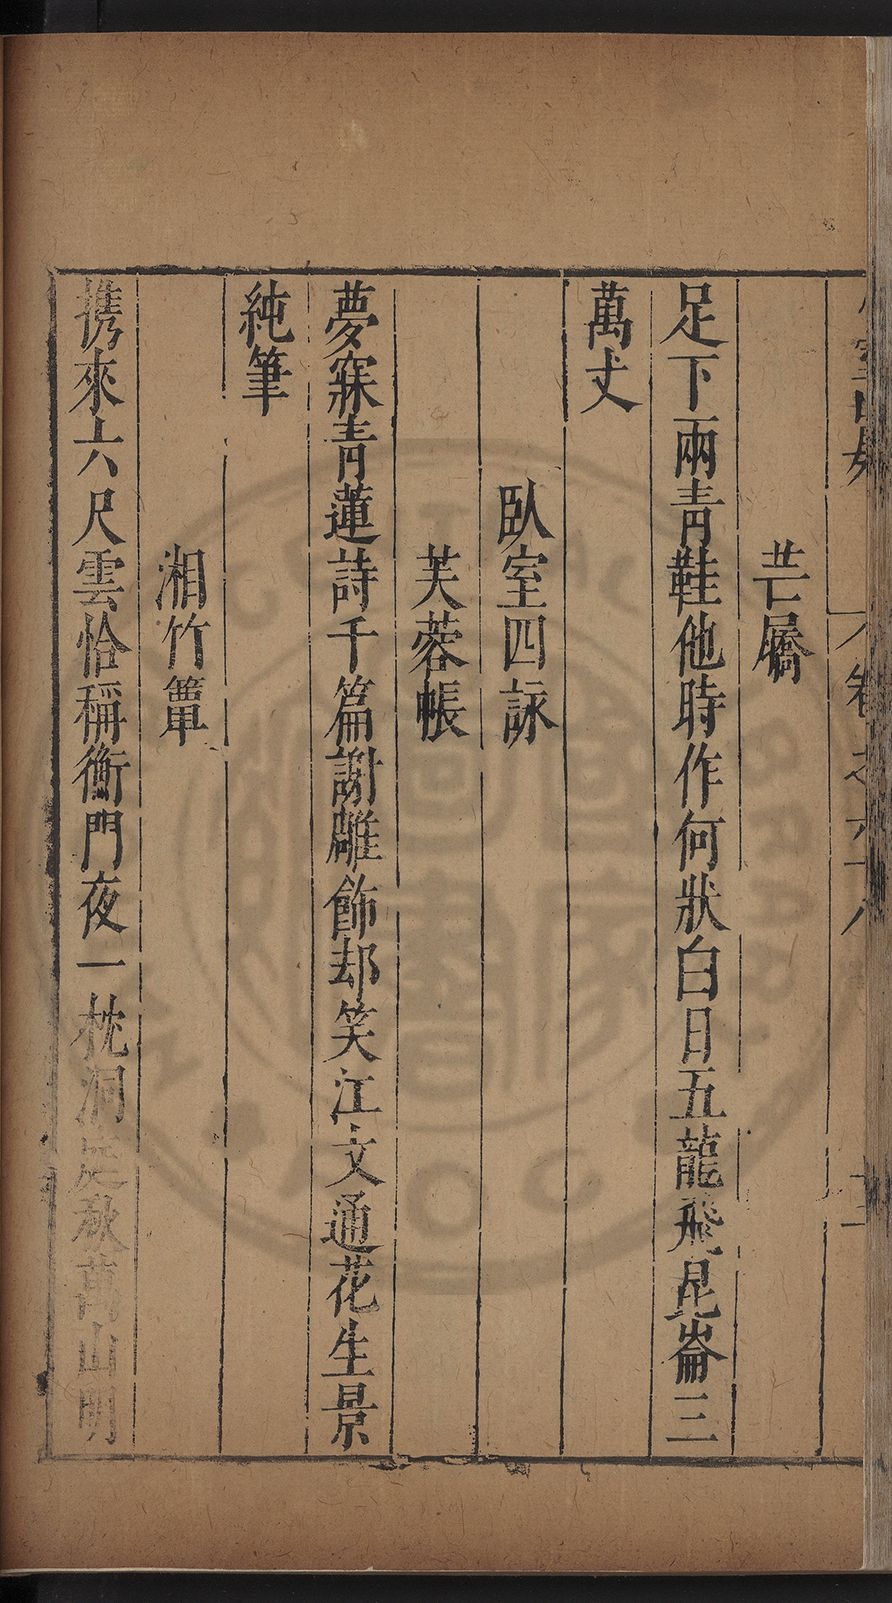 卷之六十八
芒屩
足下兩青鞋他時作何狀白日五龍飛昆崙三
萬丈
臥室四詠
芙蓉帳
夢寐青蓮詩千篇謝雕飾却笑江文通花生景
純筆
湘竹簟
携來六尺雲恰稱衡門夜一枕洞庭秋萬山明